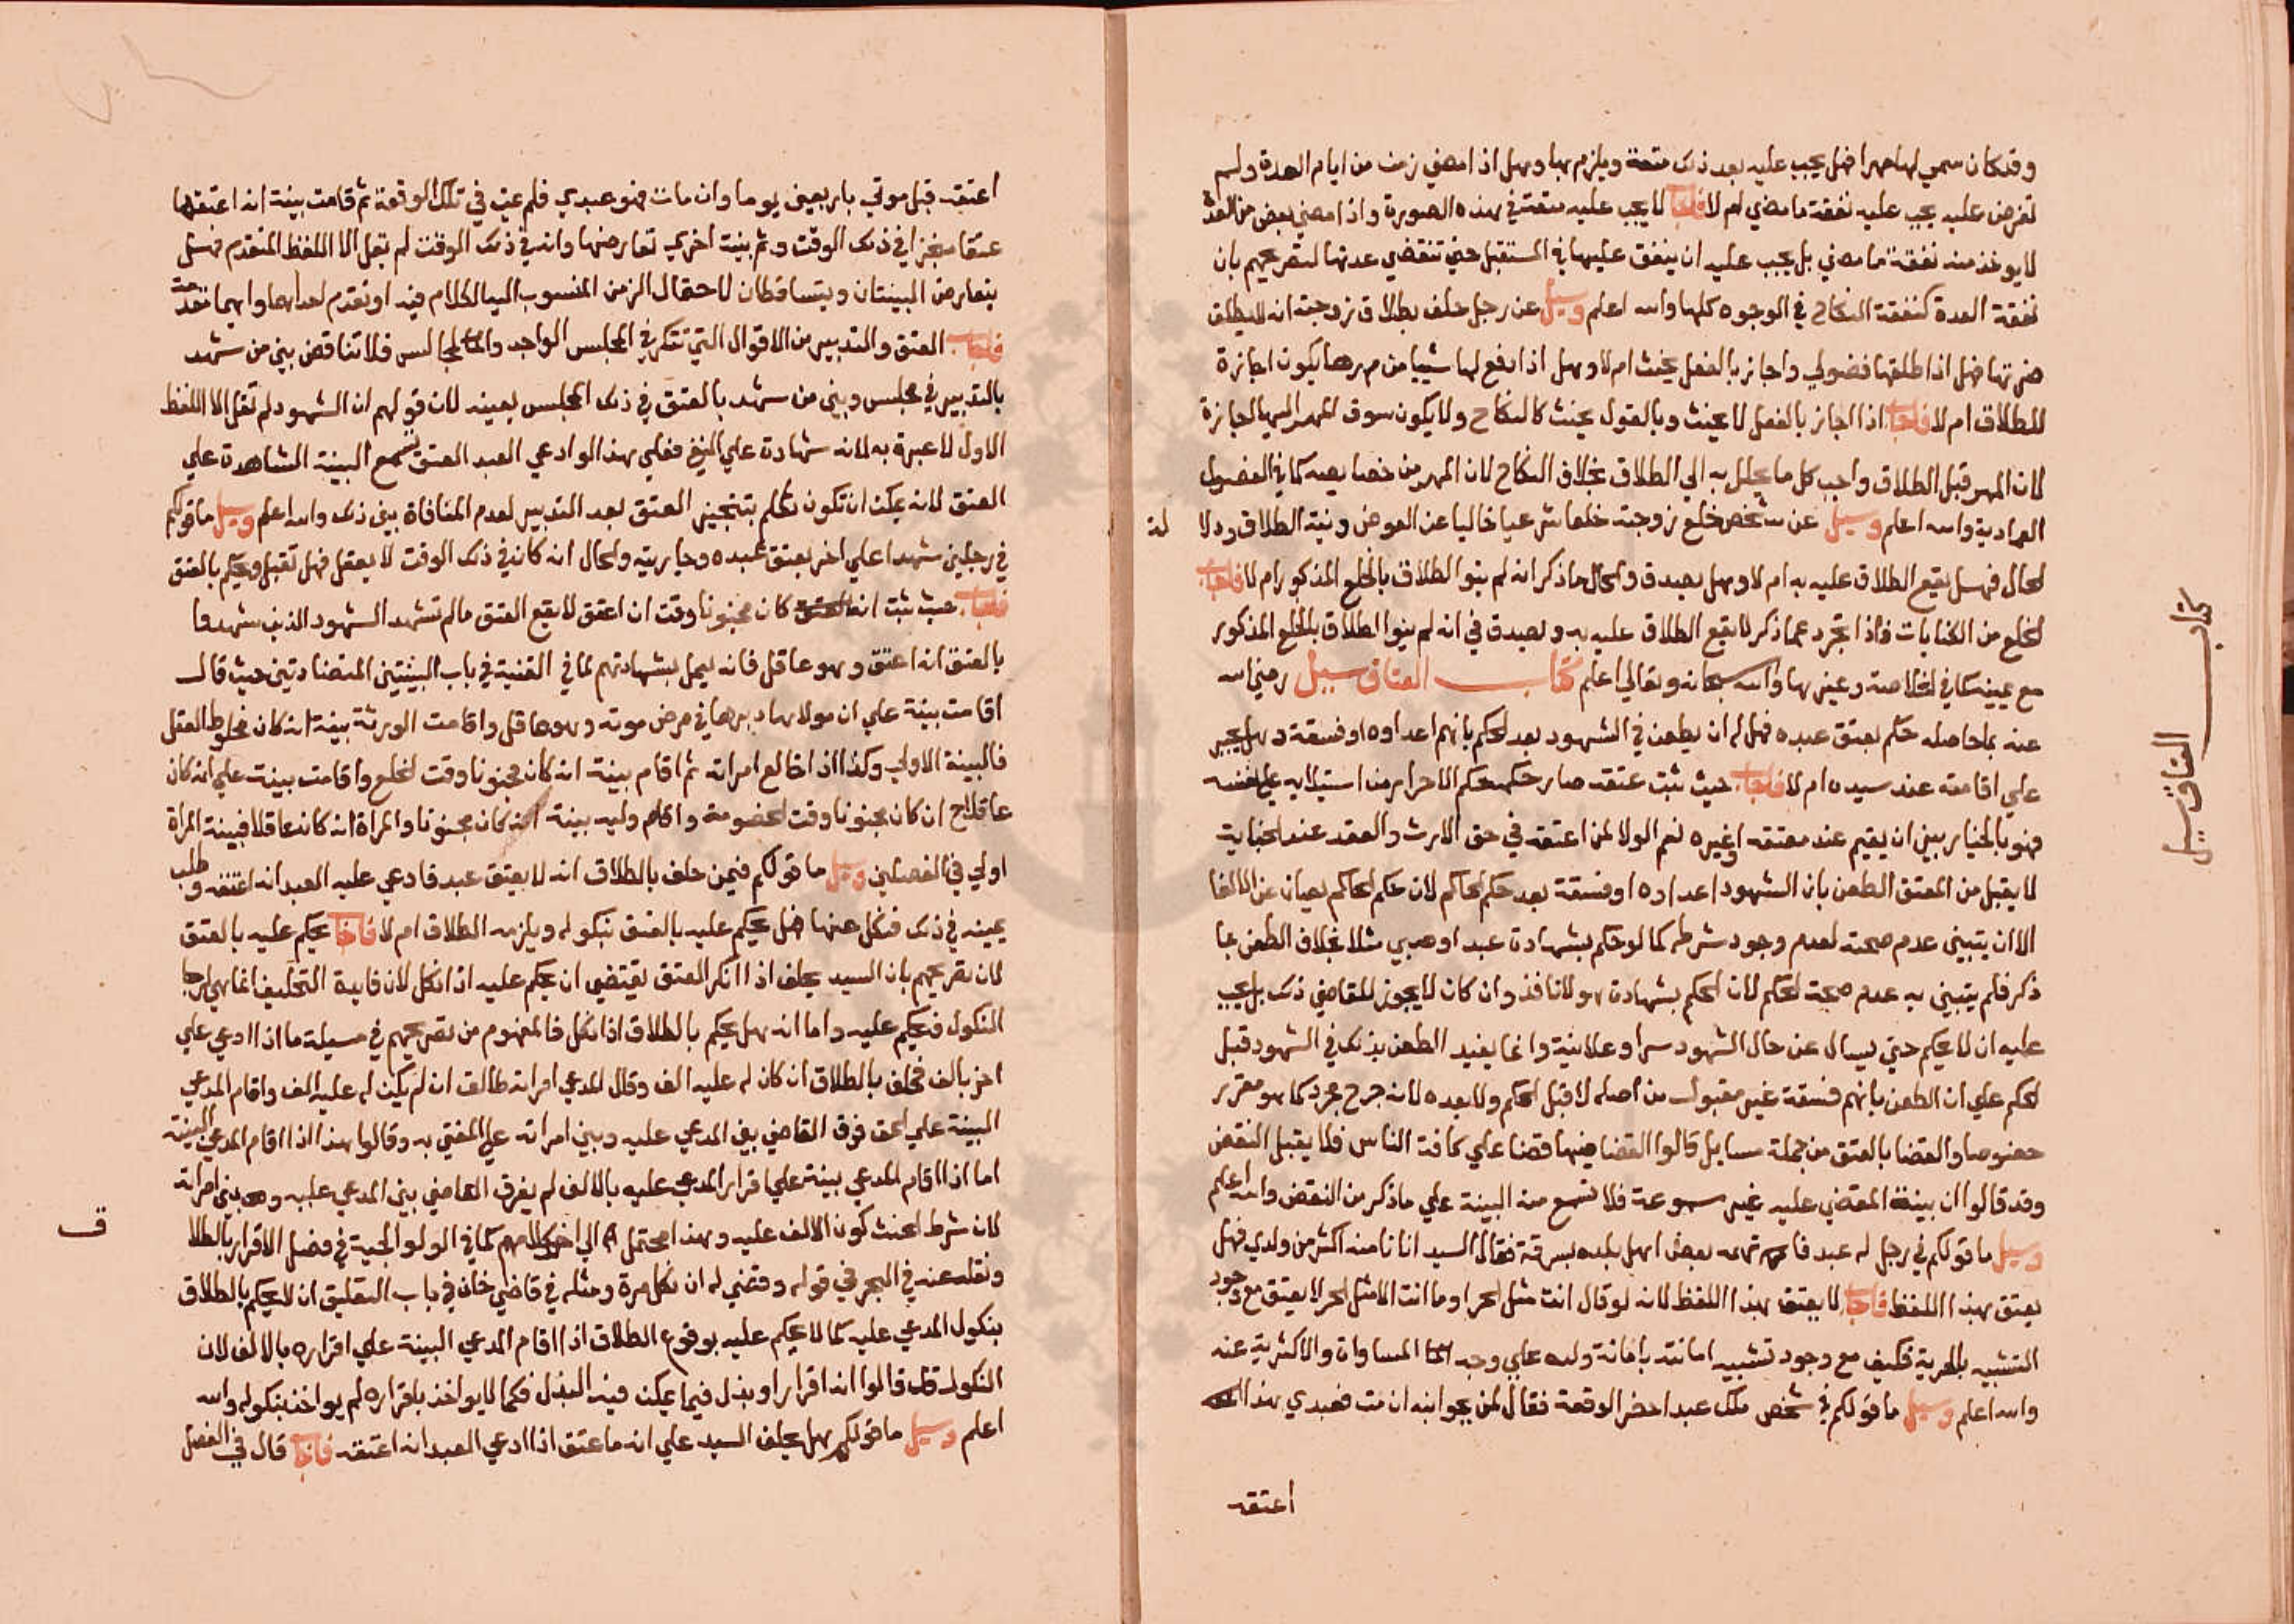 وقد كان سمي لها مهرا فهل يجب عليه بعد ذلك متعة ويلزم بها وهل اذا مضي زمن من ايام العدة ولم
تفرض عليه يجب عليه نفقة ما مضي ام لا فاجاب لا يجب عليه متعة في هذه الصورة واذا مضي بعض من العدة
لا يوخذ منه نفقة ما مضي بل يجب عليه ان ينفق عليها في المستقبل حتي تنقضي عدتها لتصريحهم بان
نفقة العدة كنفقة النكاح في الوجوه كلها والله اعلم وسيل عن رجل حلف بطلاق زوجته انه لا يطلق
ضرتها فهل اذا طلقها فضولي واجاز بالفعل يحنث ام لا وهل اذا دفع لها شييا من مهرها يكون اجازة
للطلاق ام لا فاجاب اذا اجاز بالفعل لا يحنث وبالقول يحنث كالنكاح ولا يكون سوق المهر اليها اجازة
لان المهر قبل الطلاق واجب كل ما يحلل به الي الطلاق بخلاف النكاح لان المهر من خصايصه كما في الفصول
العمادية والله اعلم وسيل عن شخص خلع زوجته خلعا شرعيا خاليا عن العوض ونية الطلاق ودلا لة
لحال فهل يقع الطلاق عليه به ام لا وهل يصدق والحال ما ذكر انه لم ينو الطلاق بالخلع المذكور ام لا فاجاب
لخلع من الكنايات فاذا تجرد عما ذكر لا يقع الطلاق عليه به ويصدق في انه لم ينوا الطلاق بالخلع المذكور
مع يمينه كما في الخلاصة وغيرها والله سبحانه وتعالي اعلم كتاب العتاق سيل رضي الله
عنه بما حاصله حكم بعتق عبده فهل له ان يطعن في الشهود بعد الحكم بانهم اعداوه او فسقة وهل يجبر
علي اقامته عند سيده ام لا فاجاب حيث ثبت عتقه صار حكمه حكم الاحرار من استيلايه علي نفسه
فهو بالخيار بين ان يقيم عند معتقه او غيره نعم الولا لمن اعتقه في حق الارث والعقد عند الجناية
لا يقبل من المعتق الطعن بان الشهود اعداوه او فسقة بعد حكم الحاكم لان حكم الحاكم يصان عن الالغا
الا ان يتبين عدم صحته لعدم وجود شرطه كما لو حكم بشهادة عبد او صبي مثلا بخلاف الطعن بما
ذكر فلم يتبين به عدم صحة الحكم لان الحكم بشهادة هولا نافذ وان كان لا يجوز للقاضي ذلك بل يجب
عليه ان لا يحكم حتي يسال عن حال الشهود سرا وعلانية وانما يفيد الطعن بذلك في الشهود قبل
لحكم علي ان الطعن بانهم فسقة غير مقبول من اصله لا قبل الحكم ولا بعده لانه جرح مجرد كما هو مقرر
خصوصا والقضا بالعتق من جملة مسايل قالوا القضا فيها قضا علي كافة الناس فلا يقبل النقض
وقد قالوا ان بينة المقضي عليه غير مسموعة فلا تسمع منه البينة علي ما ذكر من النقض والله اعلم
وسيل ما قولكم في رجل له عبد فاتهمه بعض اهل بلده بسرقة فقال السيد انا نامنه اكثر من ولدي فهل
يعتق بهذا اللفظ فاجاب لا يعتق بهذا اللفظ لانه لو قال انت مثل الحر او ما انت الا مثل الحر لا يعتق مع وجود
التشبيه بالحرية فكيف مع وجود تشبيه امانته بامانة ولده علي وجه المساواة والاكثرية عنه
والله اعلم وسيل ما قولكم في شخص ملك عبدا حضر الوقعة فقال لمن بجوانبه ان مت فعبدي هذا
اعتقه
كتاب العتاق سيل
اعتقه قبل موتي باربعين يوما وان مات فهو عبدي فلم يمت في تلك الوقعة ثم قامت بينة انه اعتقها
عتقا منجزا في ذلك الوقت وثم بينة اخري تعارضها وانه في ذلك الوقت لم يقل الا اللفظ المتقدم فهل
يتعارض البينتان ويتساقطان لاحتمال الزمن المنسوب اليه الكلام فيه او تقدم احداهما وايهما تقدمت
فاجاب العتق والتدبير من الاقوال التي تتكرر في المجلس الواحد والمجالس فلا تناقض بين من شهد
بالتدبير في مجلس وبين من شهد بالعتق في ذلك المجلس بعينه لان قولهم ان الشهود لم تقل الا اللفظ
الاول لا عبرة به لانه شهادة علي النفي فعلي هذا لو ادعي العبد العتق تسمع البينة الشاهدة علي
العتق لانه يمكن ان تكون تكلم بتنجيز العتق بعد التدبير لعدم المنافاة بين ذلك والله اعلم وسيل ما قولكم
في رجلين شهدا علي اخر بعتق عبده وجاريته والحال انه كان في ذلك الوقت لا يعقل فهل تقبل ويحكم بالعتق
فاجاب حيث ثبت انه كان مجنونا وقت ان اعتق لا يقع العتق ما لم تشهد الشهود الذين شهدوا
بالعتق انه اعتق وهو عاقل فانه يعمل بشهادتهم لما في القنية في باب البينتين المتضادتين حيث قال
اقامت بينة علي ان مولاها دبرها في مرض موته وهو عاقل واقامت الورثة بينة انه كان مخلوط العقل
فالبينة الاولي وكذا اذا خالع امراته ثم اقام بينة انه كان مجنونا وقت الخلع واقامت بينة علي انه كان
عاقلا ان كان مجنونا وقت الخصومة واقام وليه بينة انه كان مجنونا والمراة انه كان عاقلا فبينة المراة
اولي في الفصلين وسيل ما قولكم فيمن حلف بالطلاق انه لا يعتق عبد فادعي عليه العبد انه اعتقه وطلب
يمينه في ذلك فنكل عنها فهل يحكم عليه بالعتق بنكوله ويلزمه الطلاق ام لا فاجاب يحكم عليه بالعتق
لان تصريحهم بان السيد يحلف اذا انكر العتق يقتضي ان يحكم عليه اذا نكل لان فايدة التحليف انما هي لرجا
النكول فيحكم عليه واما انه هل يحكم بالطلاق اذا نكل فالمفهوم من تصريحهم في مسيلة ما اذا ادعي علي
اخر بالف فحلف بالطلاق ان كان له عليه الف وقال المدعي امراته طالق ان لم يكن له عليه الف واقام المدعي
البينة علي الحق فرق القاضي بين المدعي عليه وبين امراته علي المفتي به وقالوا هذا اذا اقام المدعي البينة
اما اذا اقام المدعي بينة علي اقرار المدعي عليه بالالف لم يفرق القاضي بين المدعي عليه وبين امراته
لان شرط الحنث كون الالف عليه وهذا محتمل الي اخر كلامهم كما في الولوالجية في فصل الاقرار بالطلا ق
ونقله عنه في البحر في قوله وقضي له ان نكل مرة ومثله في قاضي خان في باب التعليق انه لا يحكم بالطلاق
بنكول المدعي عليه كما لا يحكم عليه بوقوع الطلاق اذا اقام المدعي البينة علي اقراره بالالف لان
النكول قالوا انه اقرار او بذل فيما يمكن فيه البذل فكما لا يواخذ باقراره لم يواخذ بنكوله والله
اعلم وسيل ما قولكم هل يحلف السيد علي انه ما عتق اذا ادعي العبد انه اعتقه فاجاب قال في الفصل